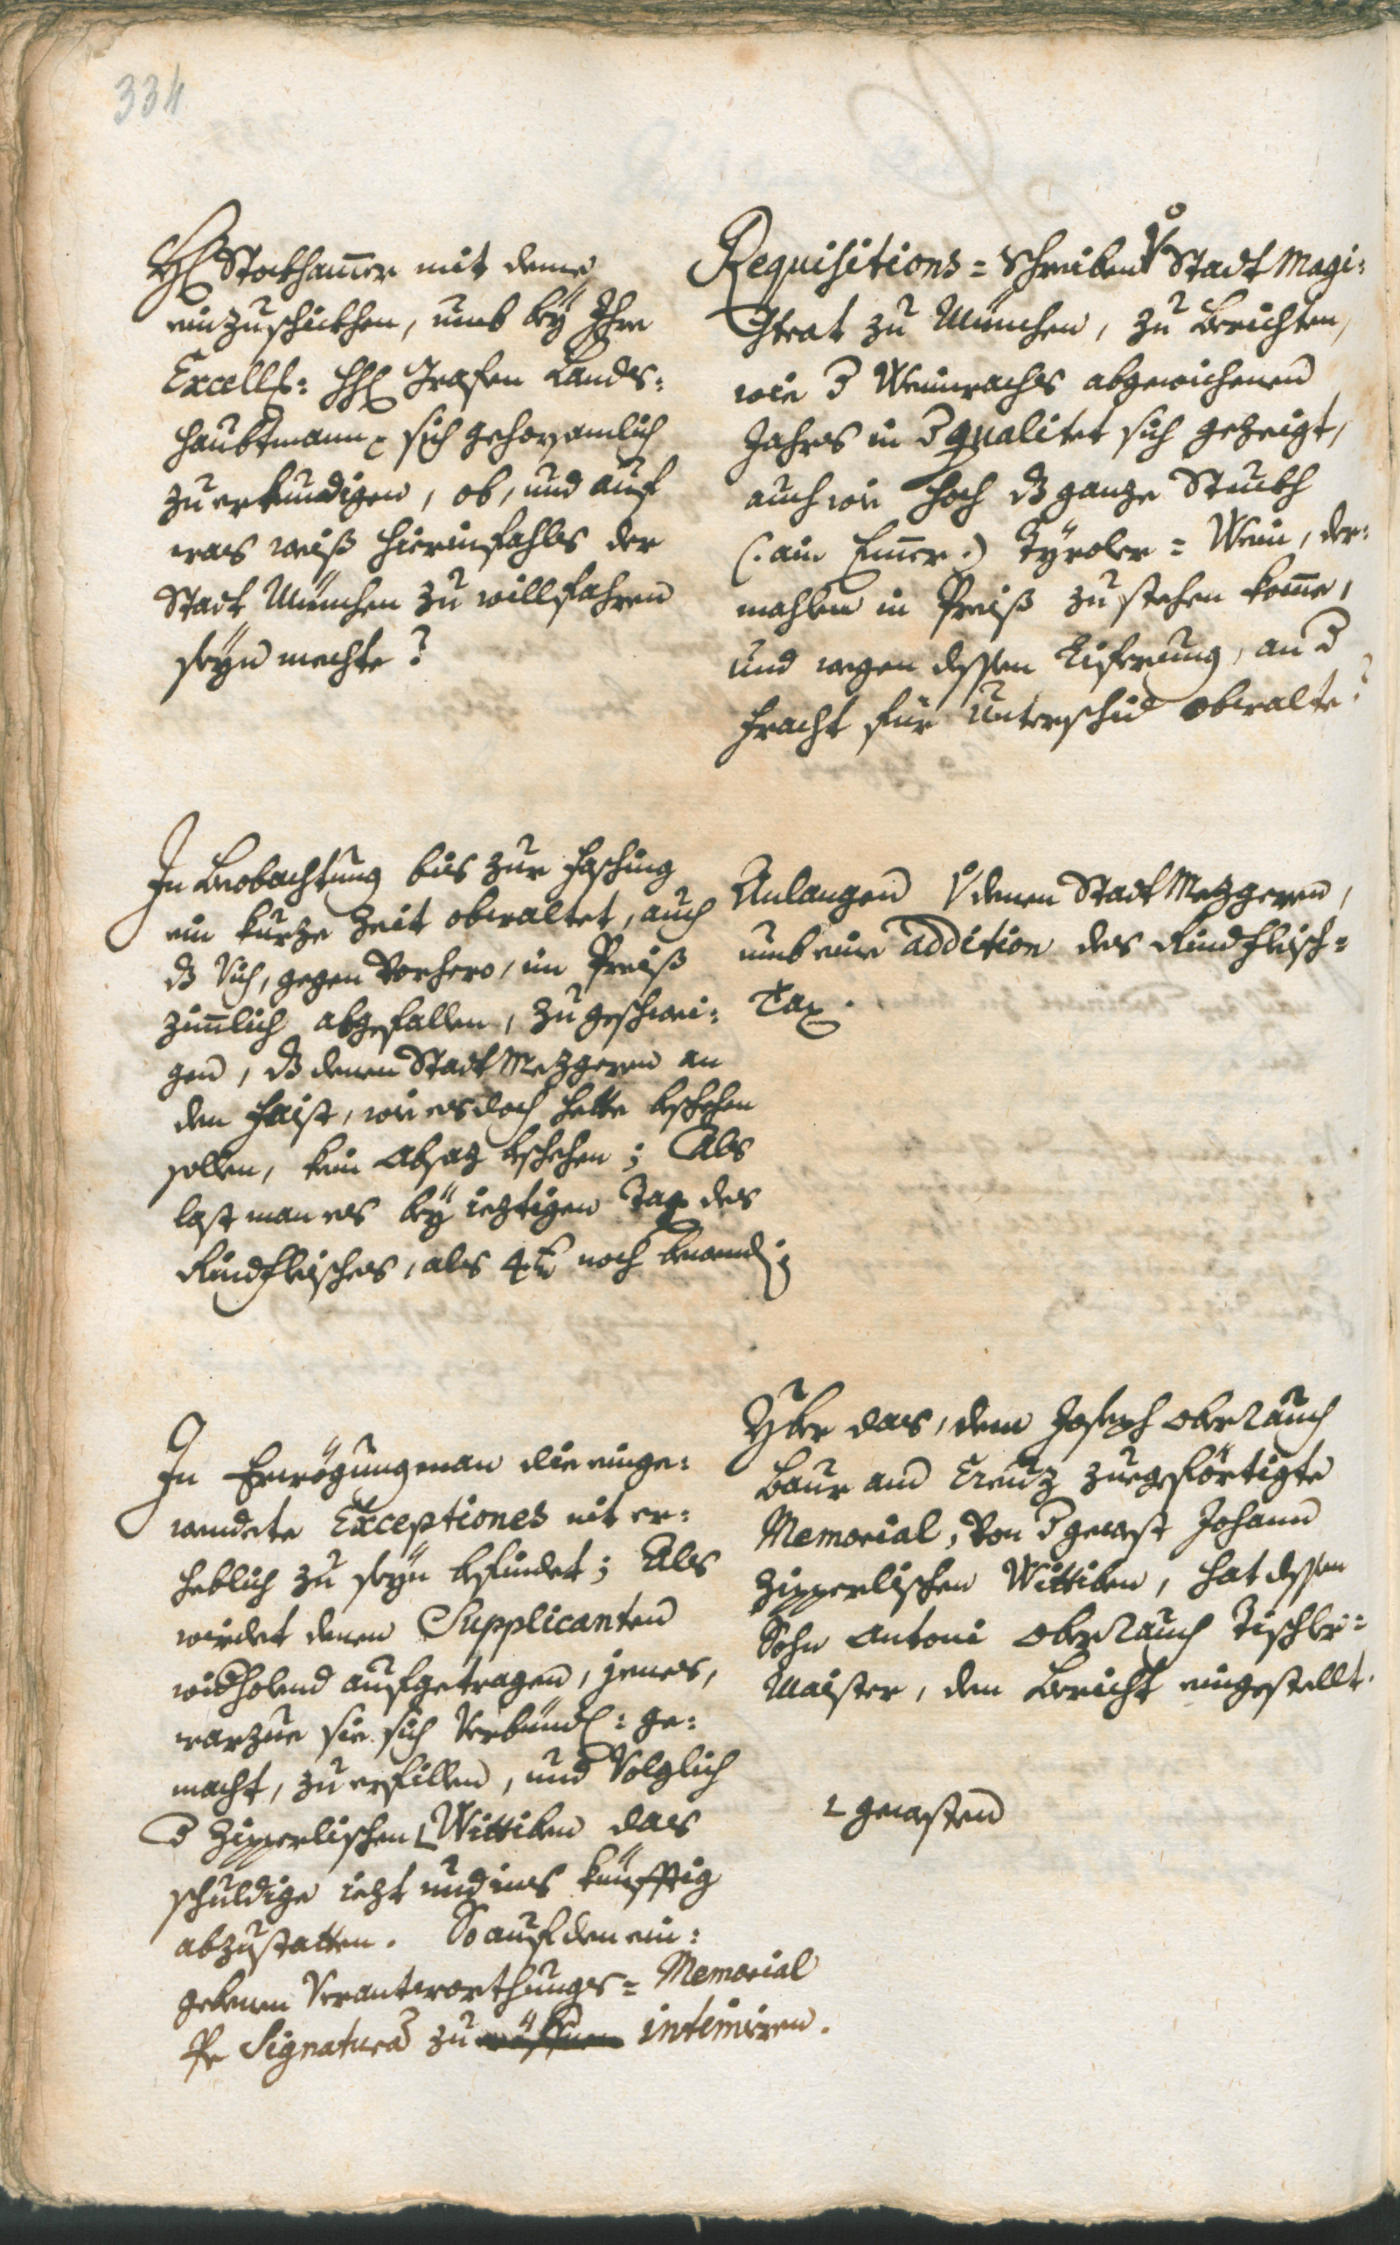 334
H: Stockhammer mit deme
einzuschickhen, umb bey Ihro
Excell: H: Grafen Lands=
haubtmann p sich gehorsamlich
zu erkundigen, ob, und auf
was weiß hierinfahls der
Statt München zu willfahren
seyn mechte?
Requisitions=Schreiben v. Statt Magi=
strat zu München, zu berichten,
wie d Weinwachs abgewichenen
Jahrs in d qualitet sich gezeigt,
auch wie hoch dz ganze Stuckh
(: ain Emmer :) Tÿroler=Wein, der=
mahlen in Preiß zu stehen komme,
und wegen dessen Liferung, an d
fracht für Unterschid obwalte?
In beobachtung bis zur Fasching
ein kurze Zeit obwaltet, auch
dz Vich, gegen Vorhero, im Preiß
zimlich abgefallen, zu geschwei=
gen, dz denen Statt Mezgeren an
den Faist, wie es doch hette beschehen
sollen, kein Absaz beschehen; Als
last man es bey ieztigen Tax des
Rindfleisches, als 4 x noch bewend;
Anlangen v denen Statt Mezgeren,
umb eine addition des Rindfleisch=
Tax.
In Erwögung man die einge=
wendete Exceptiones nit er=
heblich zu seyn befindet; Als
wirdet denen Supplicanten
widholend aufgetragen, jenes,
warzue sie sich verbündl: ge=
macht, zu erfillen, und Volglich
d Zipperlischen Wittiben das
schuldige iezt und ins künfftig
abzustatten. So auf den ein=
gebenen Verantworthungs=Memorial
Per Signatura zu intimiren.
Yber das, dem Joseph Oberrauch
Baur am Creuz zuegeförtigte
Memorial, Von d gewest Johann
Zipperlischen Wittiben, hat dessen
Sohn Antoni Oberrauch Tischler=
Maister, den Bericht eingestellt.
gewesten